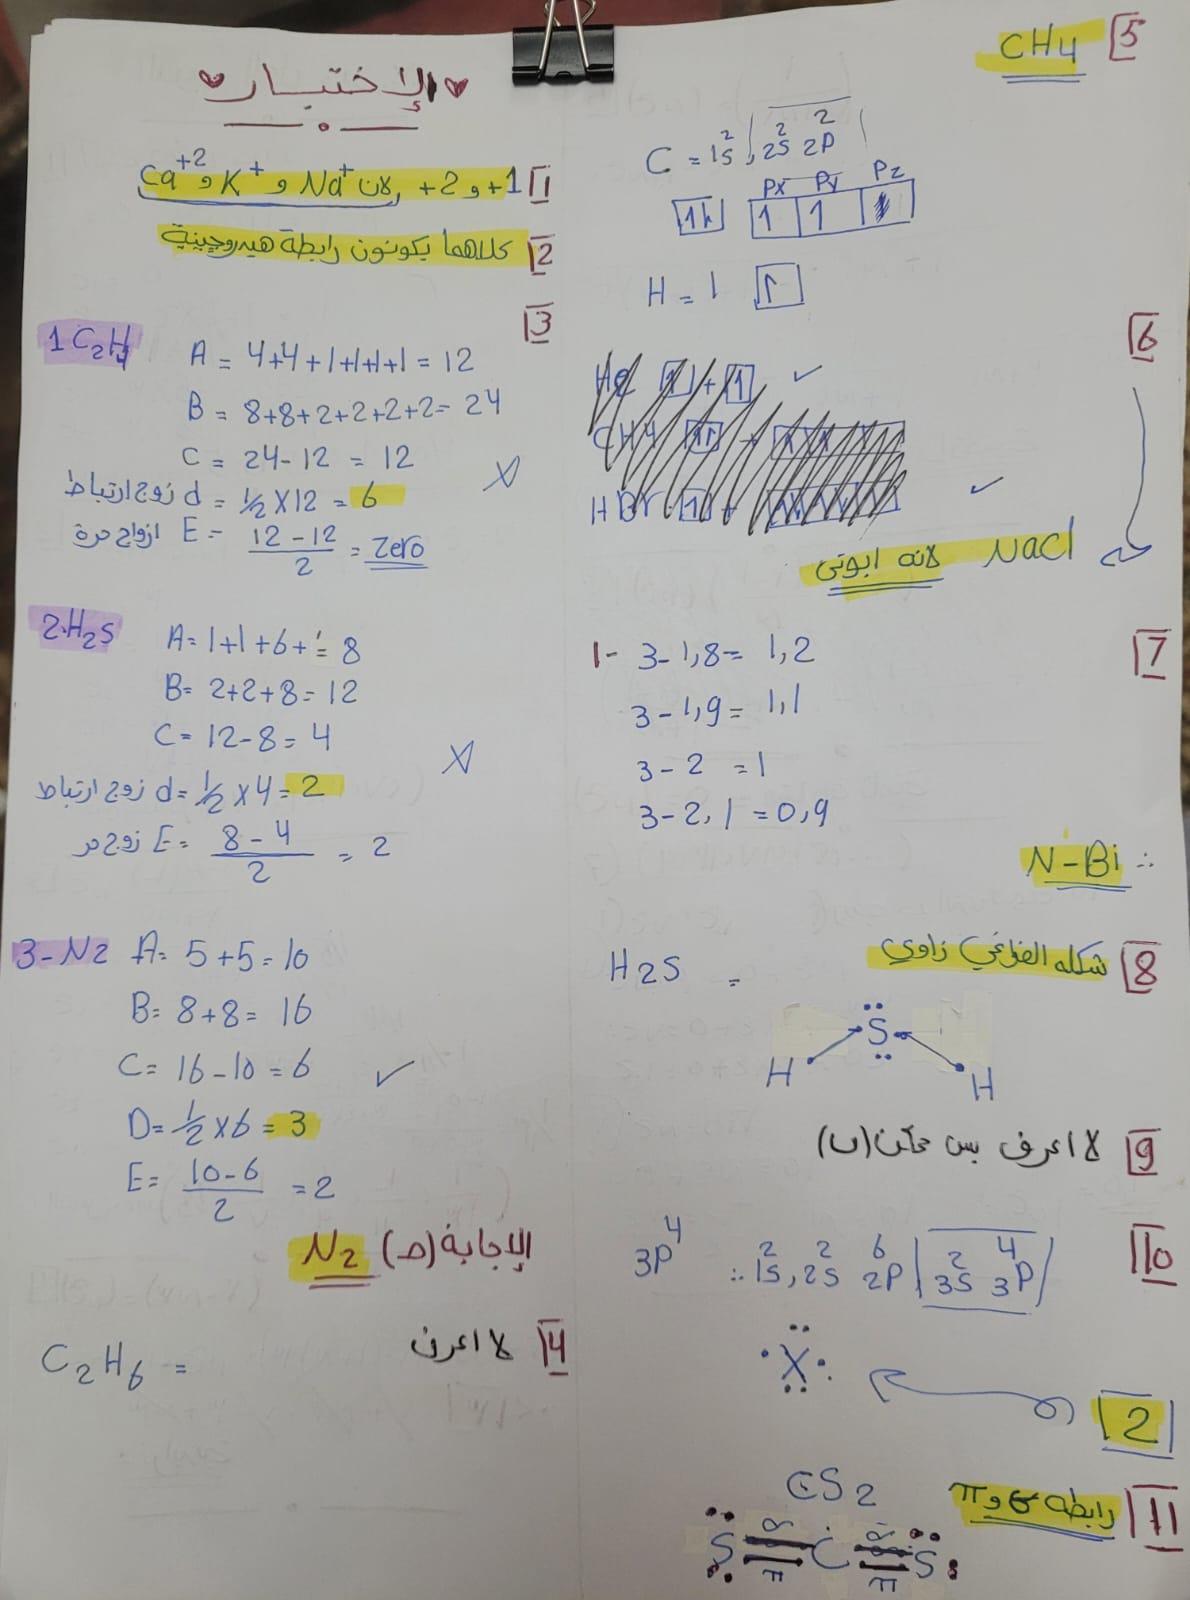 الإختبار
1 +1 و +2 , لان Na⁺ و K⁺ و Ca⁺²
2 كلاهما يكونون رابطة هيدروجينية
3
1 C₂H₄
A = 4+4+1+1+1+1 = 12
B = 8+8+2+2+2+2 = 24
C = 24-12 = 12
زوج ارتباط d = ½ X 12 = 6
ازواج حرة E = (12-12)/2 = Zero
2. H₂S
A = 1+1+6+ = 8
B = 2+2+8 = 12
C = 12-8 = 4
زوج ارتباط d = ½ x 4 = 2
زوج حر E = (8-4)/2 = 2
3- N₂
A = 5+5 = 10
B = 8+8 = 16
C = 16-10 = 6
D = ½ x 6 = 3
E = (10-6)/2 = 2
الإجابة (ص) N₂
4 لا اعرف
C₂H₆ =
5 CH₄
C = 1s², 2s² 2p²
Px Py Pz
1 1
H = 1 1
6
NaCl لانه ايوني
7
1- 3-1,8 = 1,2
3-1,9 = 1,1
3-2 = 1
3-2,1 = 0,9
∴ N-Bi
8 شكله الفراغي زاوي
H₂S =
S
H H
9 لا اعرف بس ممكن (ب)
10
3p⁴ ∴ 1s², 2s² 2p⁶ 3s² 3p⁴
X
2
11 رابطة σ و π
CS₂
σ σ
S C S
π π